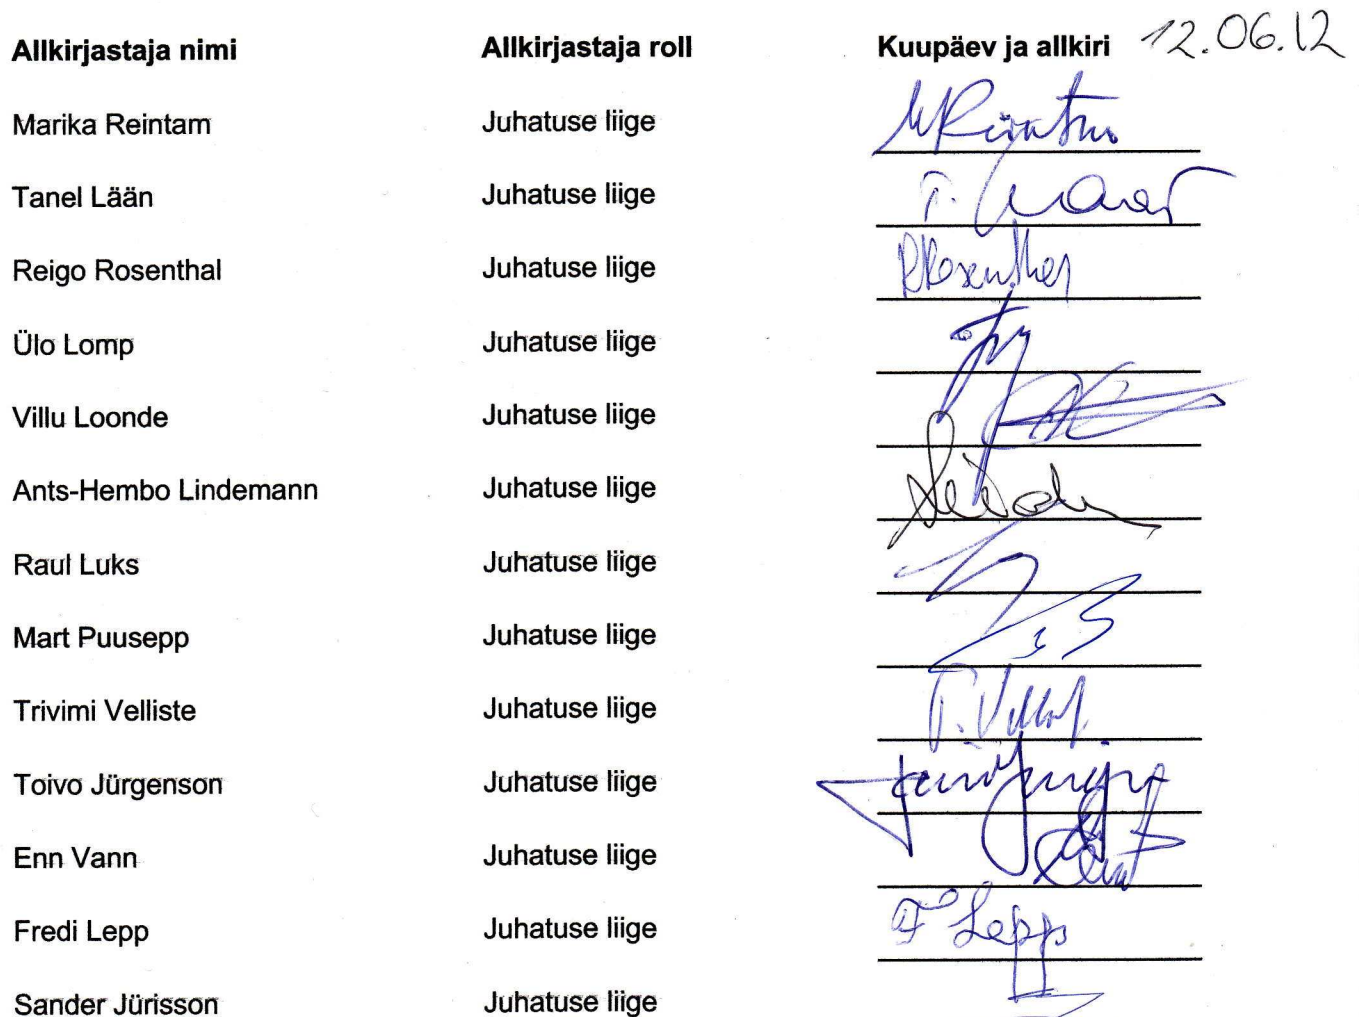 Allkirjastaja nimi Allkirjastaja roll Kuupäev ja allkiri 12.06.12
Marika Reintam Juhatuse liige
Tanel Lään Juhatuse liige
Reigo Rosenthal Juhatuse liige
Ülo Lomp Juhatuse liige
Villu Loonde Juhatuse liige
Ants-Hembo Lindemann Juhatuse liige
Raul Luks Juhatuse liige
Mart Puusepp Juhatuse liige
Trivimi Velliste Juhatuse liige
Toivo Jürgenson Juhatuse liige
Enn Vann Juhatuse liige
Fredi Lepp Juhatuse liige F Lepp
Sander Jürisson Juhatuse liige